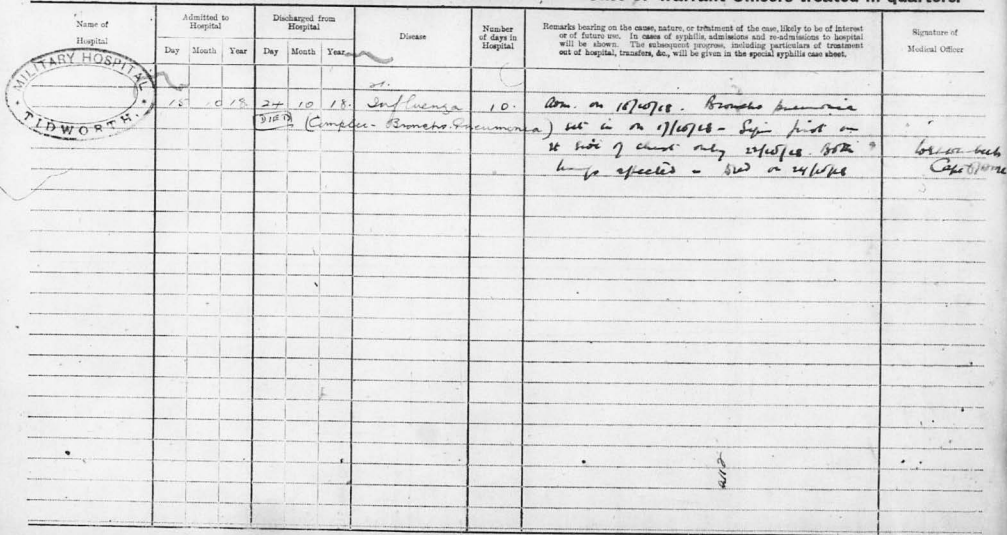 Warrant Officers treated in quarters.
Name of
Hospital
Admitted to
Hospital
Day Month Year
Discharged from
Hospital
Day Month Year
Disease
Number
of days in
Hospital
Remarks bearing on the cause, nature, or treatment of the case, likely to be of interest
or of future use. In cases of syphilis, admissions and re-admissions to hospital
will be shown. The subsequent progress, including particulars of treatment
out of hospital, transfers, &c., will be given in the special syphilis case sheet.
Signature of
Medical Officer
MILITARY HOSPITAL
TIDWORTH.
15 10 18 24 10 18. Influenza 10. Adm. on 15/10/18. Broncho pneumonia
DIED (Complic- Broncho Pneumonia) set in on 17/10/18 - Signs first on
side of chest only 22/10/18. Both
lungs affected - Died on 24/10/18
Capt